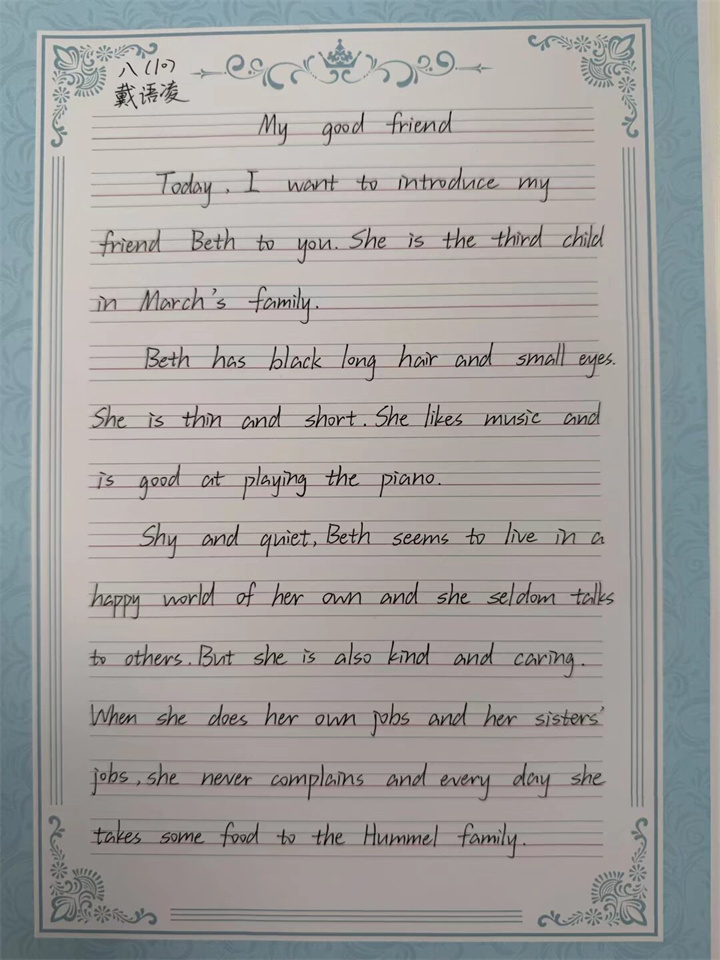 八(10)
戴语凌
My good friend
Today, I want to introduce my
friend Beth to you. She is the third child
in March's family.
Beth has black long hair and small eyes.
She is thin and short. She likes music and
is good at playing the piano.
Shy and quiet, Beth seems to live in a
happy world of her own and she seldom talks
to others. But she is also kind and caring.
When she does her own jobs and her sisters'
jobs, she never complains and every day she
takes some food to the Hummel family.